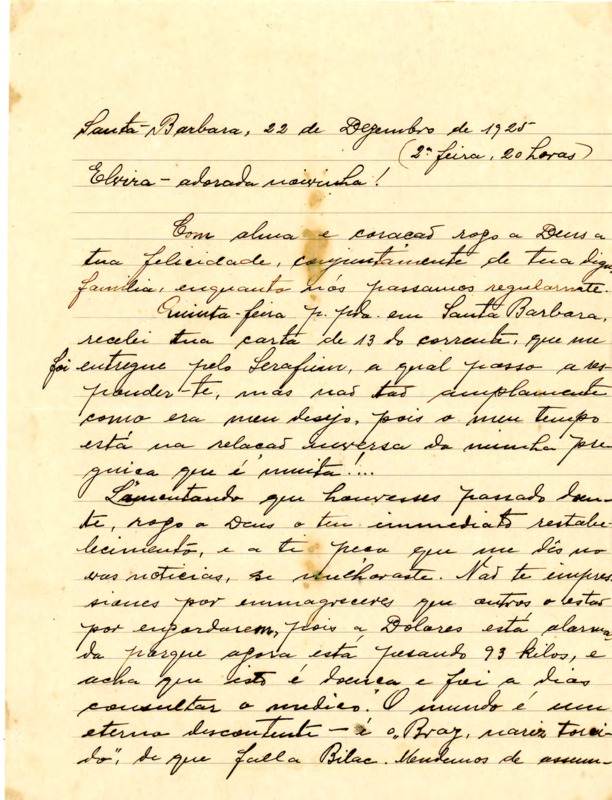 Santa-Barbara, 22 de Dezembro de 1925
(2ª feira, 20 horas)
Elvira - adorada noivinha!
Com alma e coração rogo a Deus a
tua felicidade, conjuntamente de tua digna
familia, enquanto nós passamos regularmte.
Quinta-feira p. pda. em Santa Barbara,
recebi tua carta de 13 do corrente, que me
foi entregue pelo Serafim, a qual passo a res
ponder-te, mas não tão amplamente
como era meu desejo, pois o meu tempo
está na relação inversa da minha pre
guiça que é "muita"!...
Lamentando que houvesses passado doen-
te, rogo a Deus o teu immediato restabe-
lecimento, e a ti peço que me dês no
vas noticias, se melhoraste. Não te impres
siones por emmagreceres que outros o estão
por engordarem, pois a Dolores está alarma
da porque agora está pesando 93 kilos, e
acha que isto é doença e foi a dias
consultar o medico. O mundo é um
eterno descontente - é o "Braz, nariz torci-
do", de que falla Bilac. Mudemos de assum-